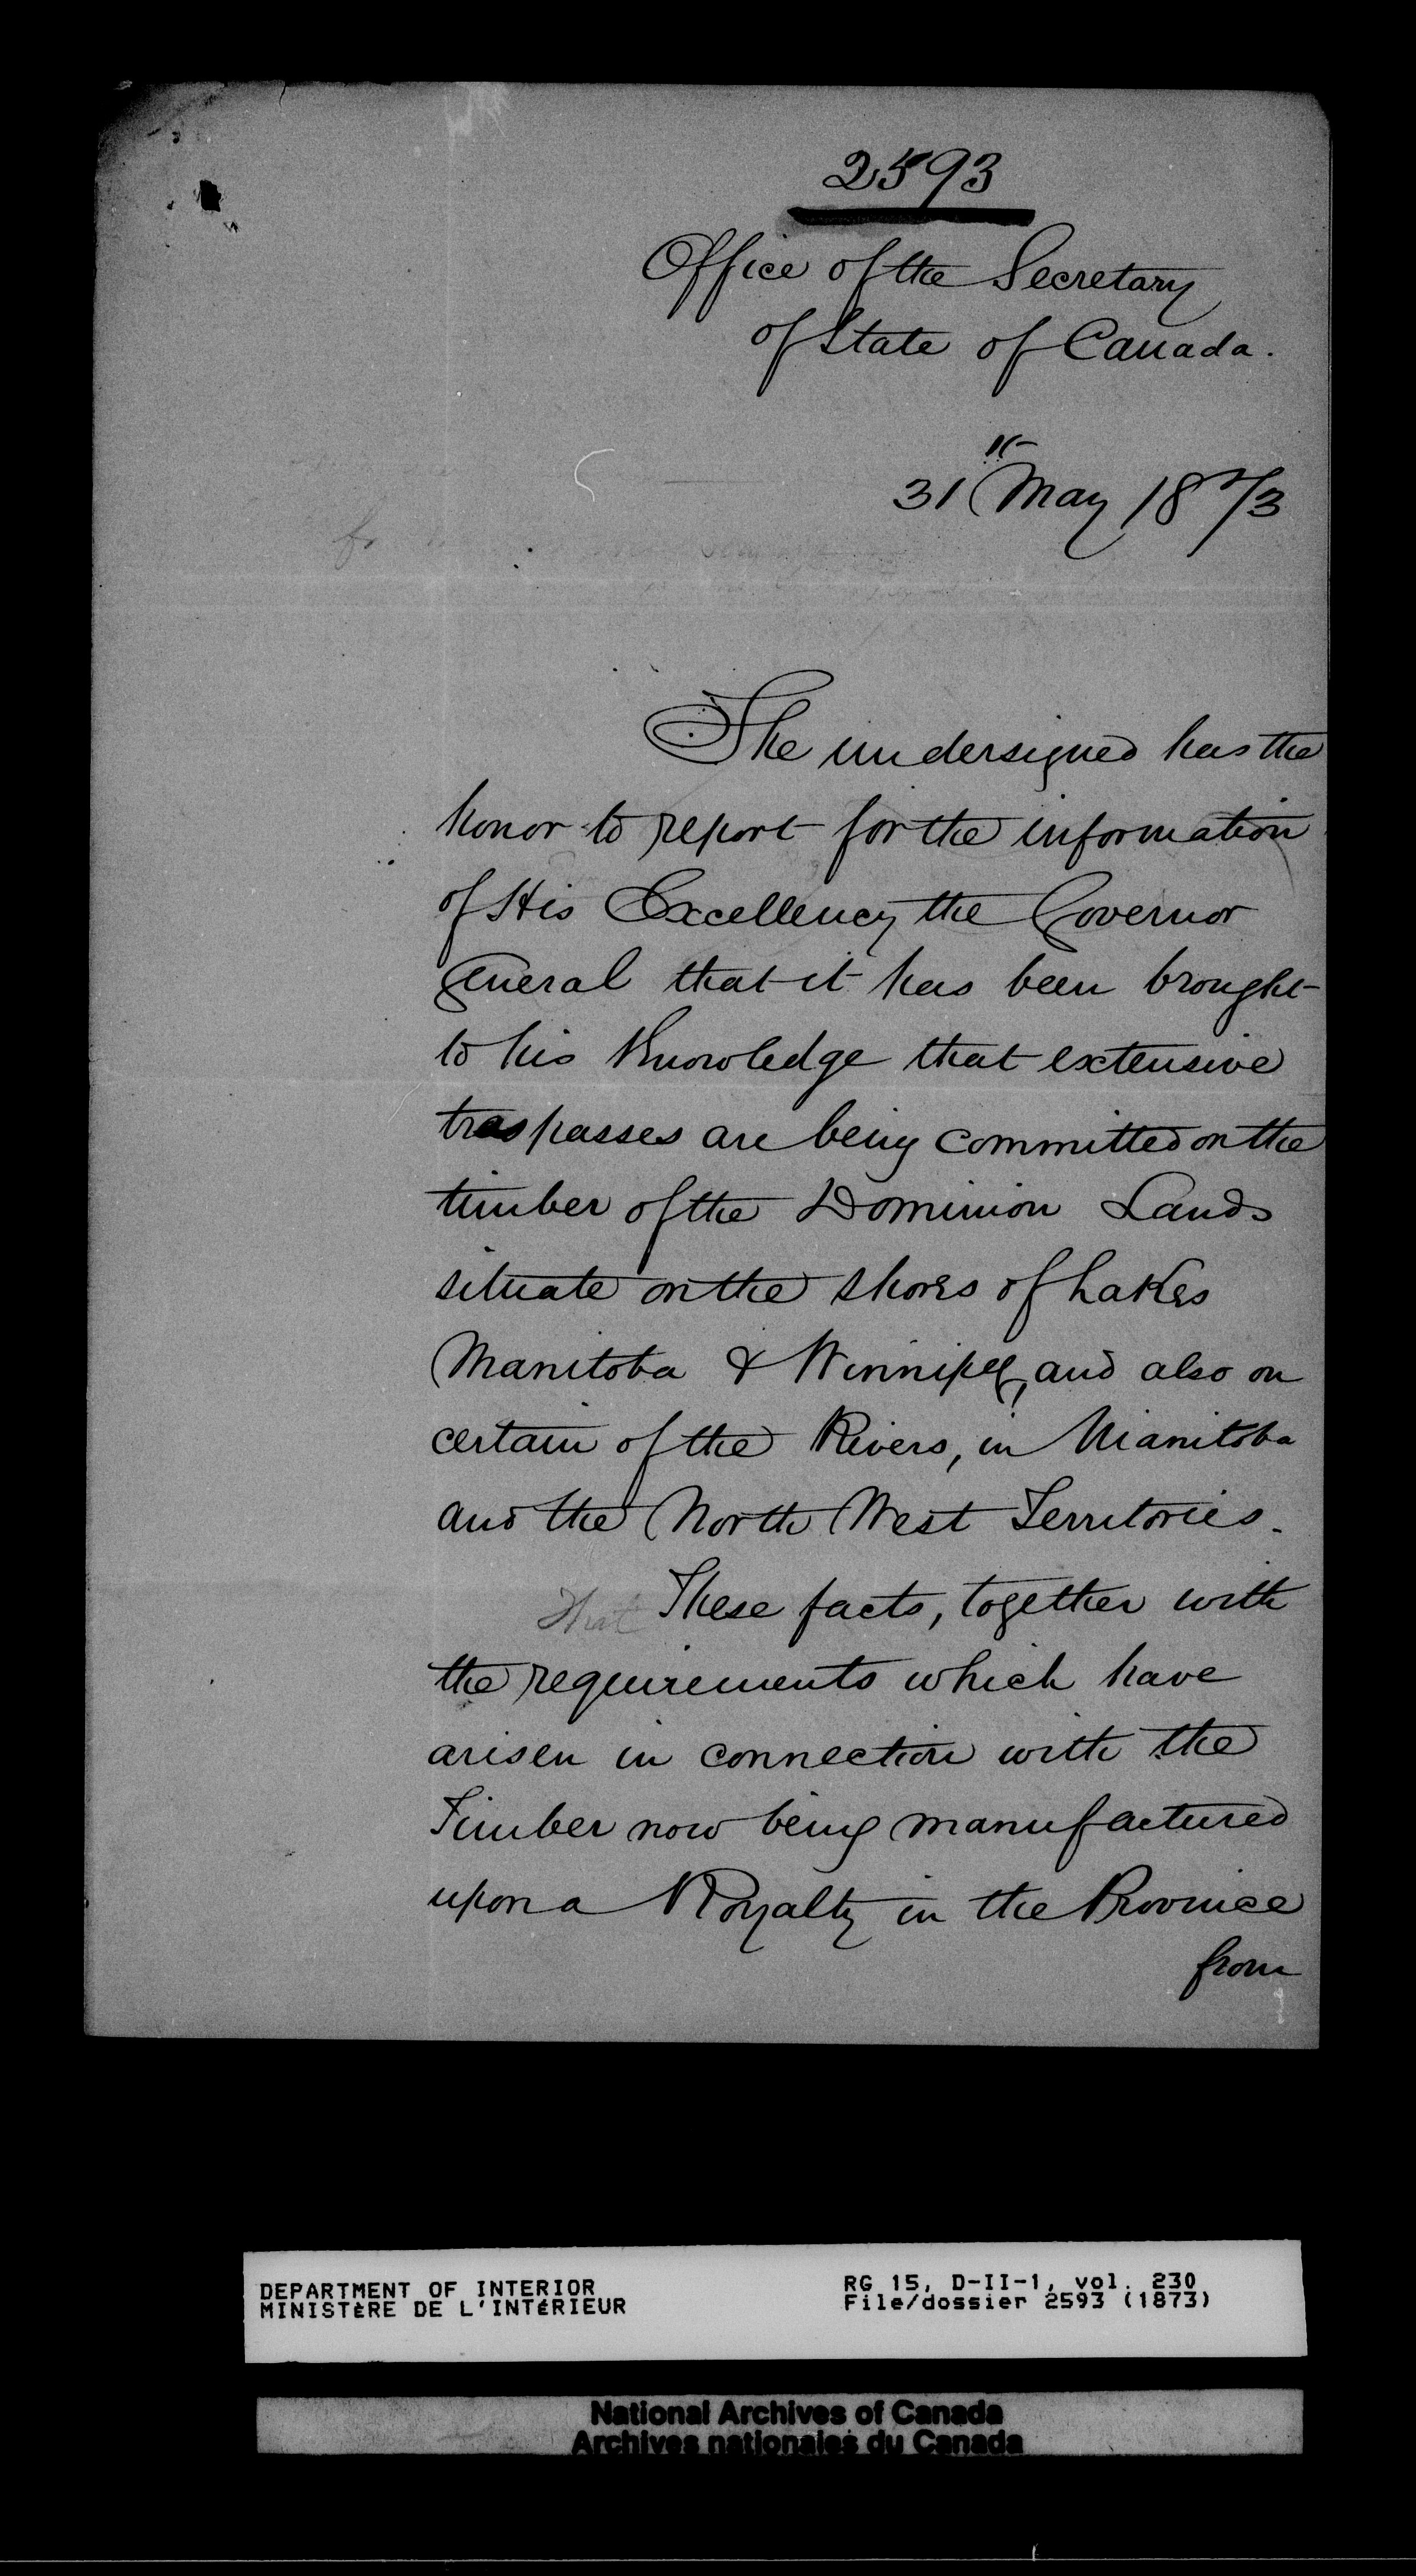 2593
Office of the Secretary
of State of Canada.
31st May 1873
The undersigned has the
honor to report for the information
of His Excellency the Governor
General that it has been brought
to his Knowledge that extensive
trespasses are being committed on the
timber of the Dominion Lands
situate on the shores of Lakes
Manitoba & Winnipeg, and also on
certain of the Rivers, in Manitoba
and the North West Territories.
That These facts, together with
the requirements which have
arisen in connection with the
Timber now being manufactured
upon a Royalty in the Province
from
DEPARTMENT OF INTERIOR
MINISTÈRE DE L'INTÉRIEUR
RG 15, D-II-1, vol. 230
File/dossier 2593 (1873)
National Archives of Canada
Archives nationales du Canada